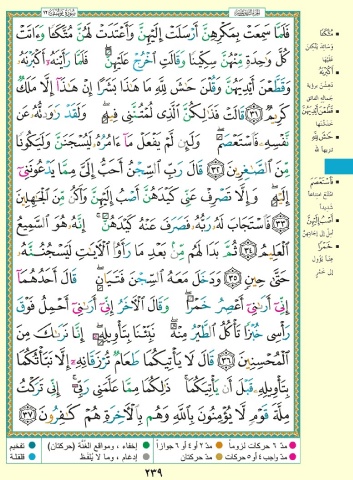 فَلَمَّا سَمِعَتْ بِمَكْرِهِنَّ أَرْسَلَتْ إِلَيْهِنَّ وَأَعْتَدَتْ لَهُنَّ مُتَّكَـًٔا وَءَاتَتْ
كُلَّ وَٰحِدَةٍ مِّنْهُنَّ سِكِّينًا وَقَالَتِ ٱخْرُجْ عَلَيْهِنَّ ۖ فَلَمَّا رَأَيْنَهُۥٓ أَكْبَرْنَهُۥ
وَقَطَّعْنَ أَيْدِيَهُنَّ وَقُلْنَ حَـٰشَ لِلَّهِ مَا هَـٰذَا بَشَرًا إِنْ هَـٰذَآ إِلَّا مَلَكٌ
كَرِيمٌ ٣١ قَالَتْ فَذَٰلِكُنَّ ٱلَّذِى لُمْتُنَّنِى فِيهِ ۖ وَلَقَدْ رَٰوَدتُّهُۥ عَن
نَّفْسِهِۦ فَٱسْتَعْصَمَ ۖ وَلَئِن لَّمْ يَفْعَلْ مَآ ءَامُرُهُۥ لَيُسْجَنَنَّ وَلَيَكُونًا
مِّنَ ٱلصَّـٰغِرِينَ ٣٢ قَالَ رَبِّ ٱلسِّجْنُ أَحَبُّ إِلَىَّ مِمَّا يَدْعُونَنِىٓ
إِلَيْهِ ۖ وَإِلَّا تَصْرِفْ عَنِّى كَيْدَهُنَّ أَصْبُ إِلَيْهِنَّ وَأَكُن مِّنَ ٱلْجَـٰهِلِينَ
٣٣ فَٱسْتَجَابَ لَهُۥ رَبُّهُۥ فَصَرَفَ عَنْهُ كَيْدَهُنَّ ۚ إِنَّهُۥ هُوَ ٱلسَّمِيعُ
ٱلْعَلِيمُ ٣٤ ثُمَّ بَدَا لَهُم مِّنۢ بَعْدِ مَا رَأَوُا۟ ٱلْـَٔايَـٰتِ لَيَسْجُنُنَّهُۥ
حَتَّىٰ حِينٍ ٣٥ وَدَخَلَ مَعَهُ ٱلسِّجْنَ فَتَيَانِ ۖ قَالَ أَحَدُهُمَآ
إِنِّىٓ أَرَىٰنِىٓ أَعْصِرُ خَمْرًا ۖ وَقَالَ ٱلْـَٔاخَرُ إِنِّىٓ أَرَىٰنِىٓ أَحْمِلُ فَوْقَ
رَأْسِى خُبْزًا تَأْكُلُ ٱلطَّيْرُ مِنْهُ ۖ نَبِّئْنَا بِتَأْوِيلِهِۦٓ ۖ إِنَّا نَرَىٰكَ مِنَ
ٱلْمُحْسِنِينَ ٣٦ قَالَ لَا يَأْتِيكُمَا طَعَامٌ تُرْزَقَانِهِۦٓ إِلَّا نَبَّأْتُكُمَا
بِتَأْوِيلِهِۦ قَبْلَ أَن يَأْتِيَكُمَا ۚ ذَٰلِكُمَا مِمَّا عَلَّمَنِى رَبِّىٓ ۚ إِنِّى تَرَكْتُ
مِلَّةَ قَوْمٍ لَّا يُؤْمِنُونَ بِٱللَّهِ وَهُم بِٱلْـَٔاخِرَةِ هُمْ كَـٰفِرُونَ ٣٧
مُتَّكَـًٔا
أَكْبَرْنَهُۥ
قَطَّعْنَ أَيْدِيَهُنَّ
حَـٰشَ لِلَّهِ
فَٱسْتَعْصَمَ
أَصْبُ إِلَيْهِنَّ
خَمْرًا
مدّ ٦ حركات لزوماً
مدّ ٢ أو ٤ أو ٦ جوازاً
إخفاء، ومواقع الغُنَّة (حركتان)
تفخيم
مدّ واجب ٤ أو ٥ حركات
مدّ حركتان
إدغام، وما لا يُلفَظ
قلقلة
٢٣٩